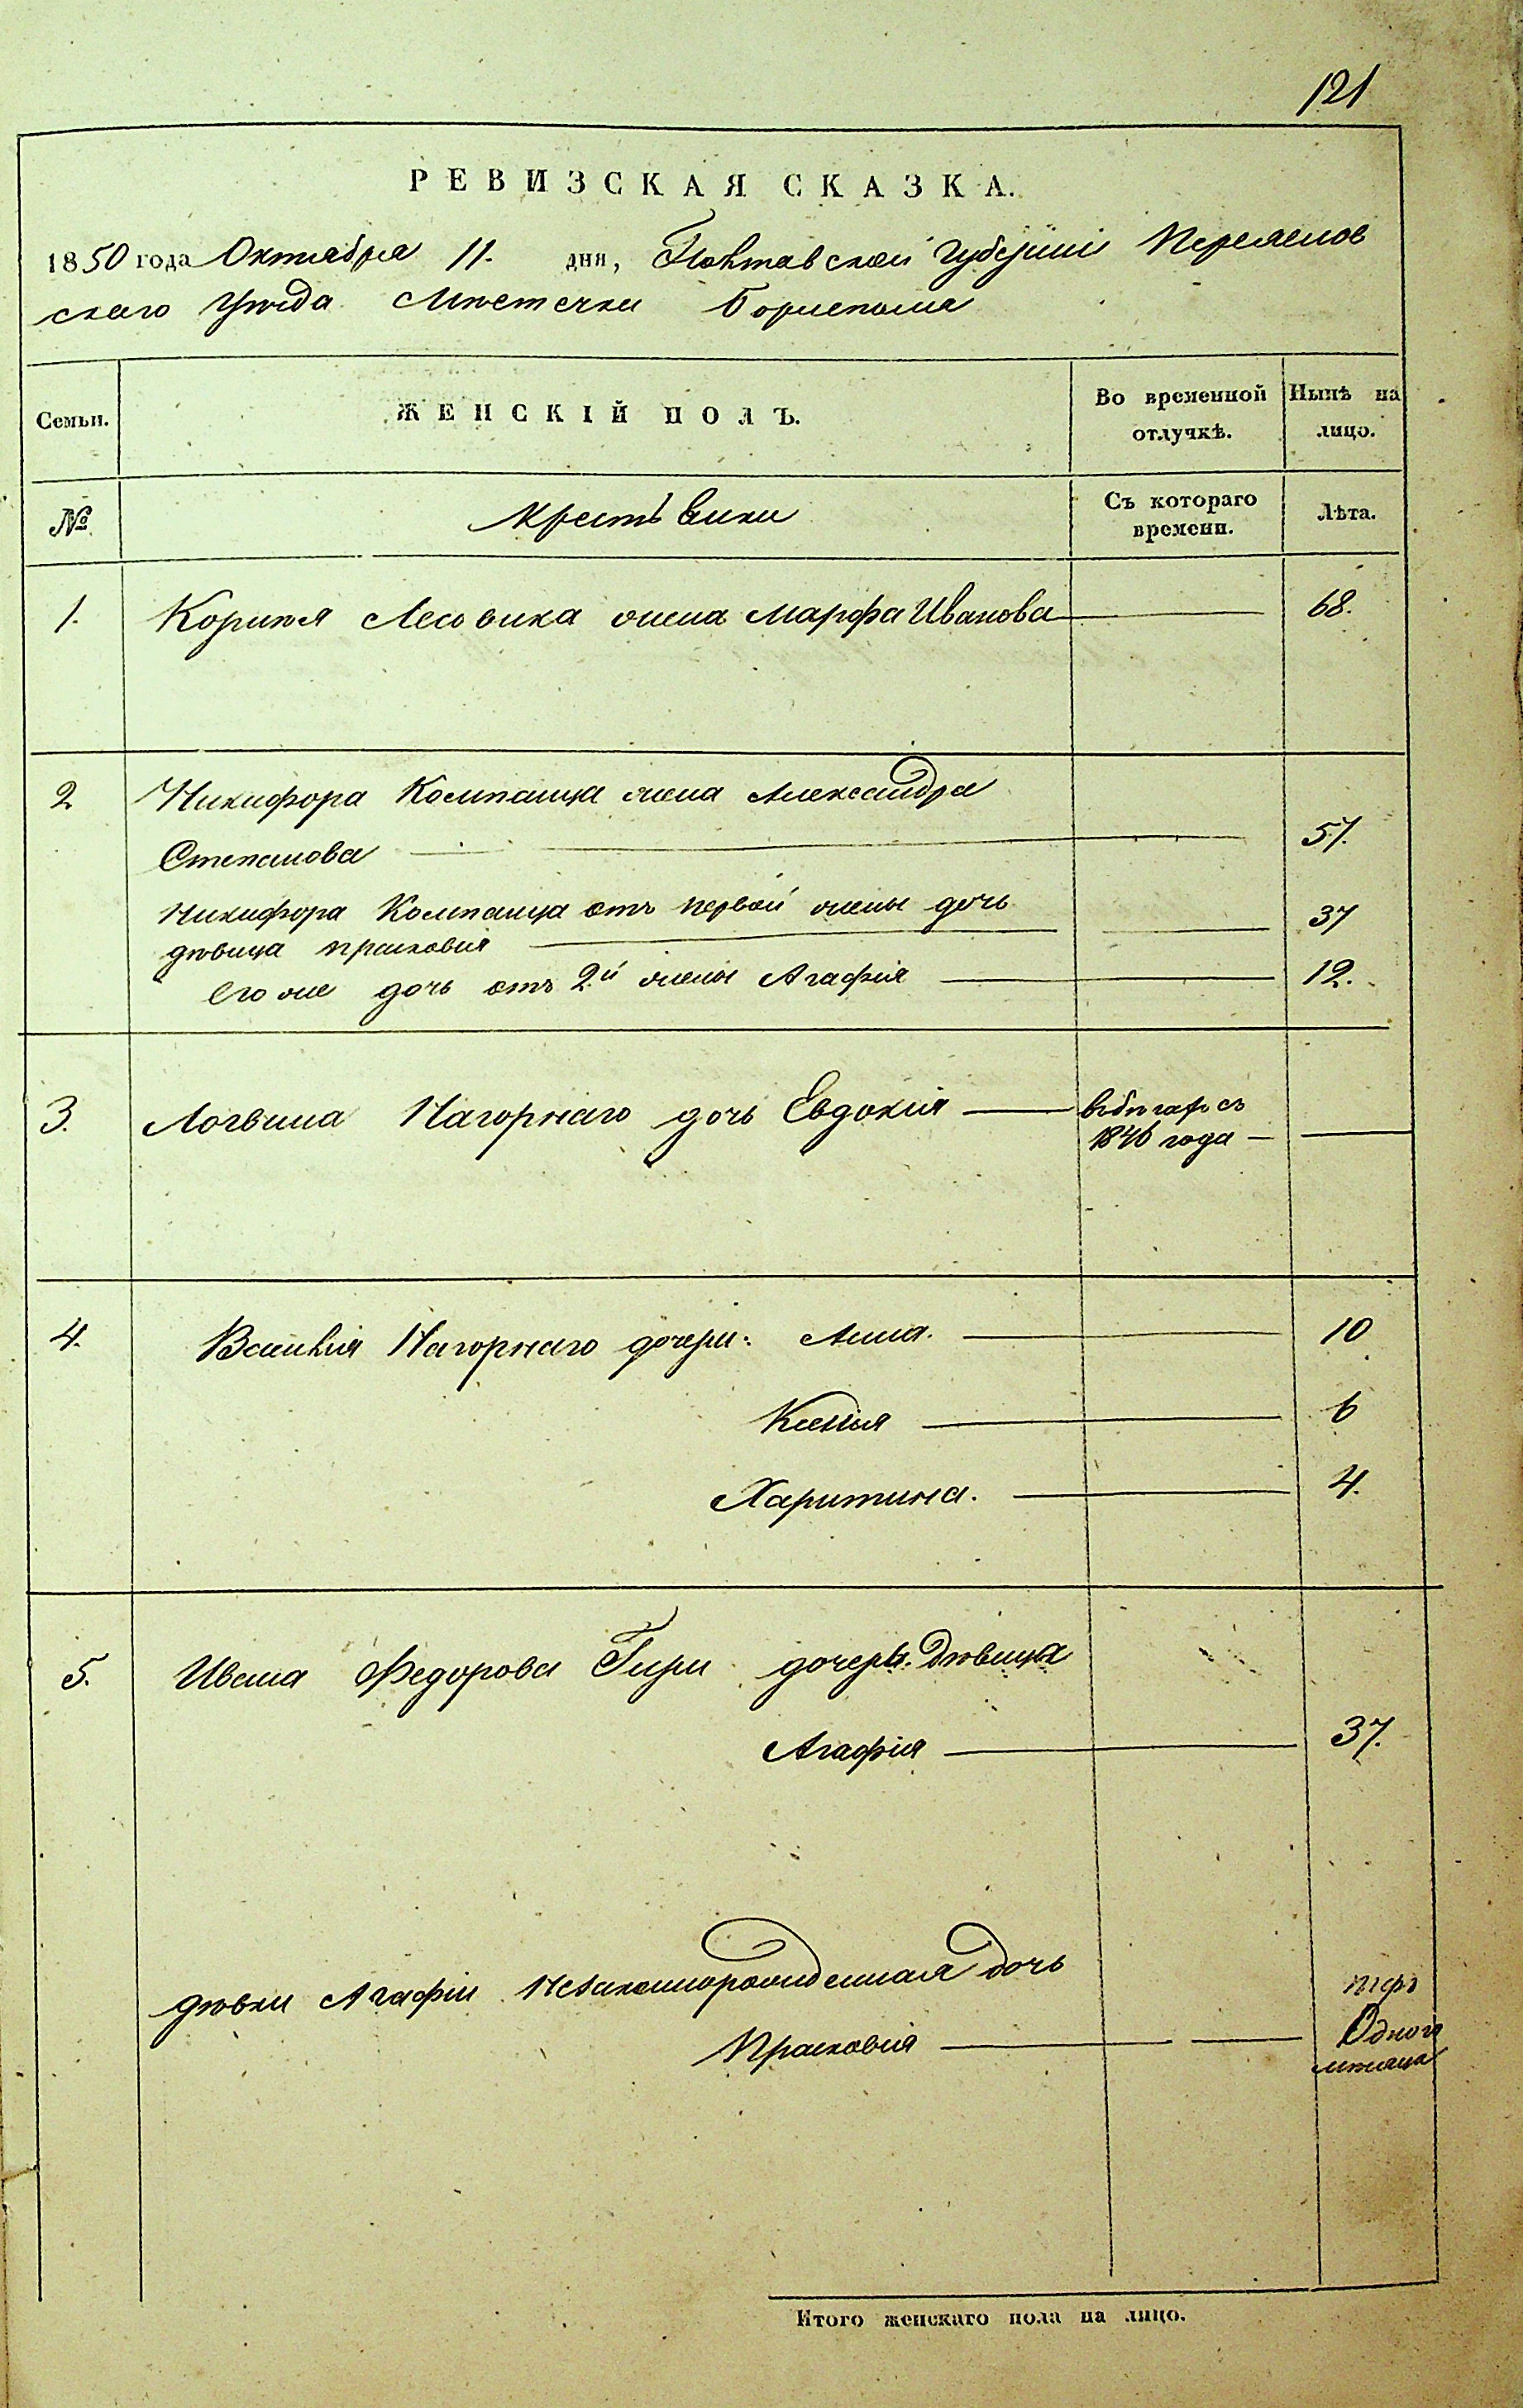 121
РЕВИЗСКАЯ СКАЗКА.
1850 года Октября 11. дня, Полтавской Губерніи Переяслов
скаго Уѣзда Мѣстечка Борисполя
Семьи. ЖЕНСКІЙ ПОЛЪ. Во временной отлучкѣ. Нынѣ на лицо.
№ Крестьянки Съ котораго времени. Лѣта.
1. Корнѣя Лесовика жена Марфа Иванова 68.
2 Никифора Компанца жена Александра
Степанова 57.
Никифора Компанца отъ первой жены дочь 37
дѣвица Прасковія
Его же дочь отъ 2й жены Агафія 12.
3. Логвина Нагорнаго дочь Евдокія въ бѣгах съ
1846 года
4. Василія Нагорнаго дочери: Анна. 10
Ксенія 6
Харитина. 4.
5. Ивана Федорова Гири дочерь: Дѣвица
Агафія 37.
дѣвки Агафіи Незаконнорожденная дочь
Прасковія Одного
мѣсяца
Итого женскаго пола на лицо.